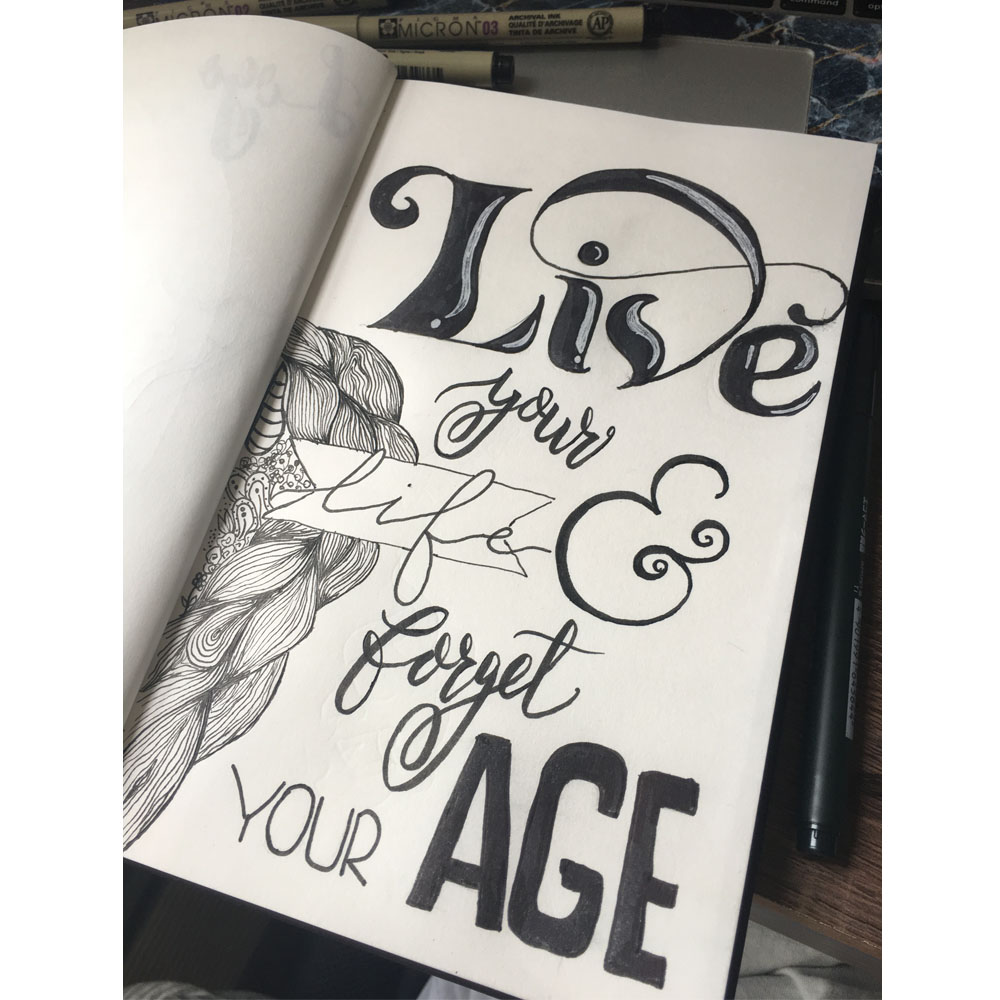 MICRON 02
MICRON 03
ARCHIVAL INK
QUALITÉ D'ARCHIVAGE
TINTA DE ARCHIVE
AP
command
Live
your
life &
forget
YOUR AGE